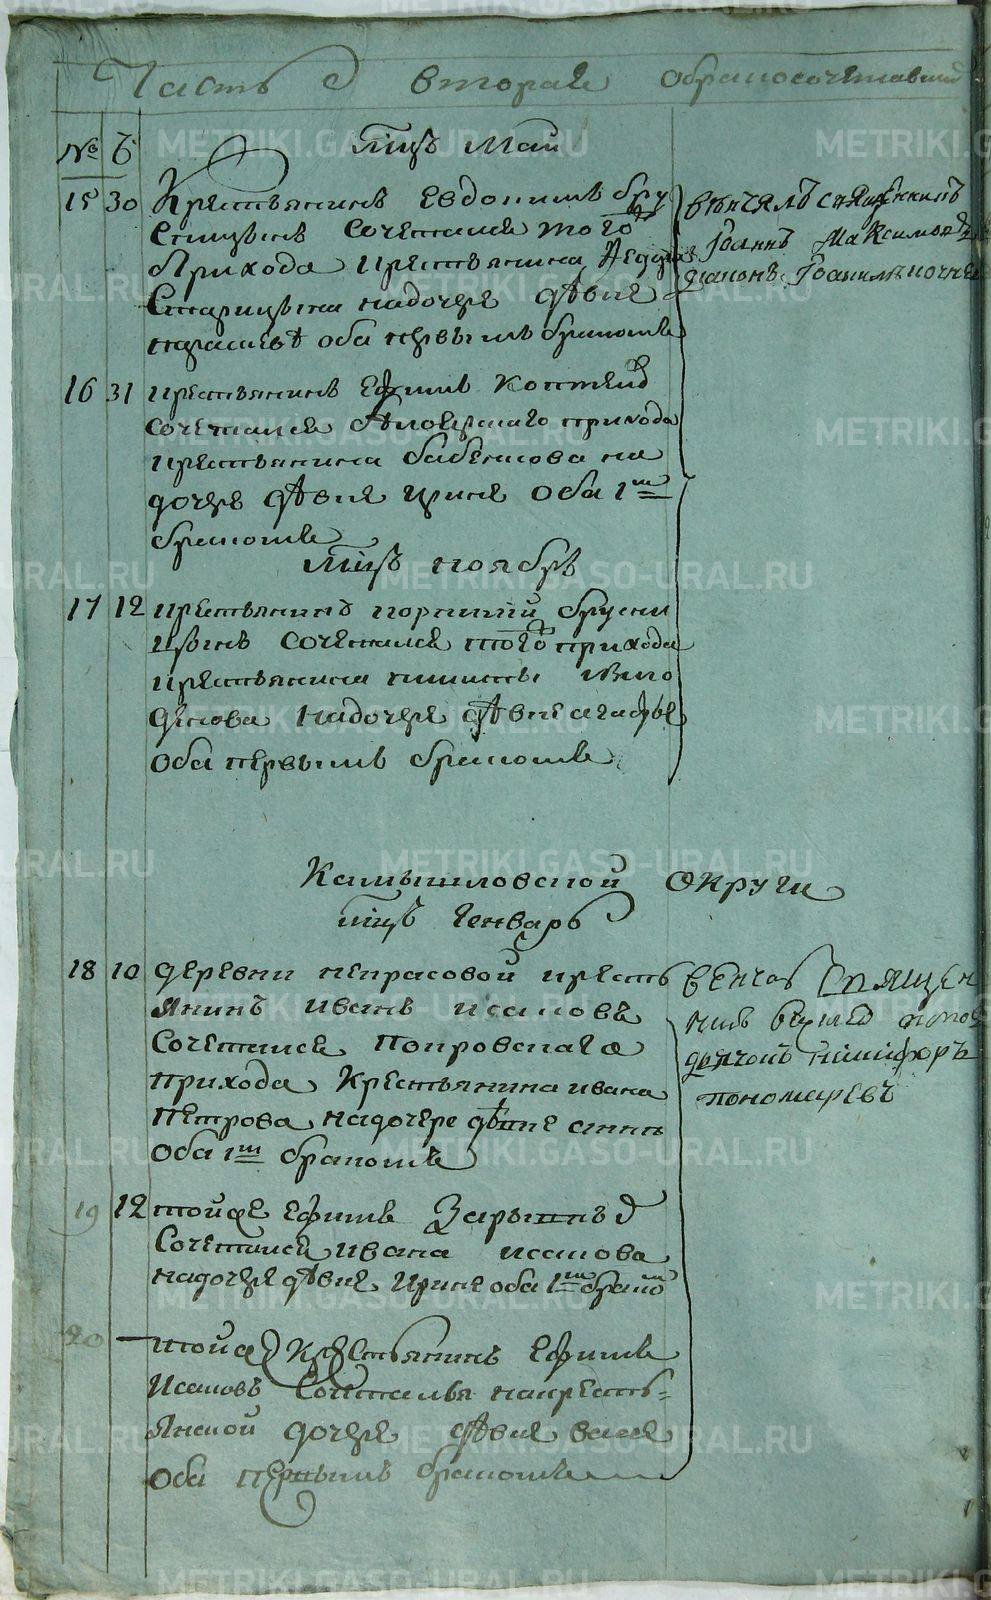 Часть вторая обракосочетавши
№ Ч
мцъ Май
15 30 Крестьянинъ Евдокимъ бру
сницынъ сочетался того
Прихода крестьянина
Старицына надочере дѣвке
параскевѣ оба первымъ бракомъ
вѣнчалъ священникъ
Иоаннъ Максимовъ
16 31 крестьянинъ Ефимъ
сочетался бѣлоярскаго прихода
крестьянина бабенкова на
дочере дѣвке ирине оба 1мъ
бракомъ
мцъ ноябрь
17 12 крестьянинъ корнилий брусни
цынъ сочетался того прихода
крестьянина никиты
надочере дѣвке агафье
оба первымъ бракомъ
Камышловской округи
мцъ Генварь
18 10 деревни некрасовой кресть
янинъ иванъ исаковъ
сочетался покровскаго
прихода крестьянина ивана
петрова надочере дѣвке анне
оба 1м бракомъ
венчал священ
никъ
дьячокъ никифоръ
пономаревъ
19 12 тойже ефимъ
сочетался ивана исакова
надочере дѣвке ирине оба 1мъ брако
20 тойже крестьянинъ ефимъ
исаковъ сочетался накресть=
янской дочере дѣвке
оба первымъ бракомъ
METRIKI.GASO-URAL.RU